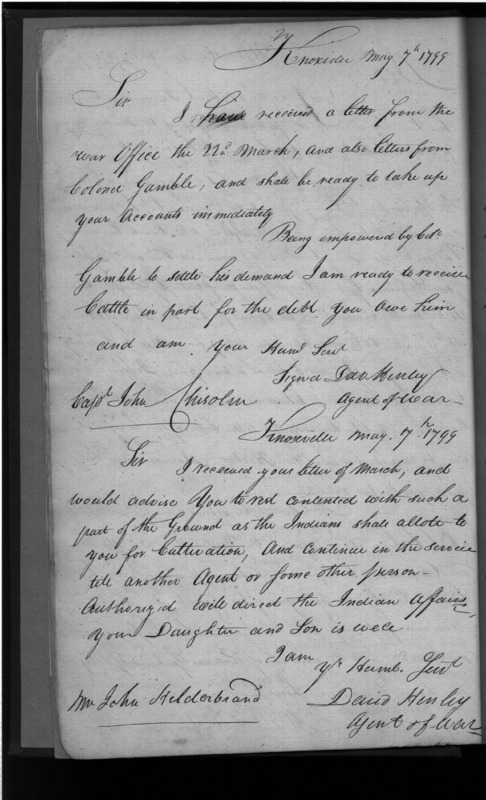 Knoxville May 7th 1799
Sir
I have received a letter from the
war Office the 22d March, and also letters from
Colonel Gamble, and shall be ready to take up
your Accounts immediately
Being empowered by Col.
Gamble to settle his demand I am ready to receive
Cattle in part for the debt you owe him
and am your Huml Servt
Signd Davd Henley
Capt John Chisolm Agent of War
Knoxville May. 7th 1799
Sir
I received your letter of March, and
would advise You to rest contented with such a
part of the Ground as the Indians shall allote to
you for Cultivation, And continue in the service
till another Agent or some other person
Authoriz'd will direct the Indian Affairs,
Your Daughter and Son is well
I am
Yr Humb. Servt
Mr John Helderbrand David Henley
Agent of War